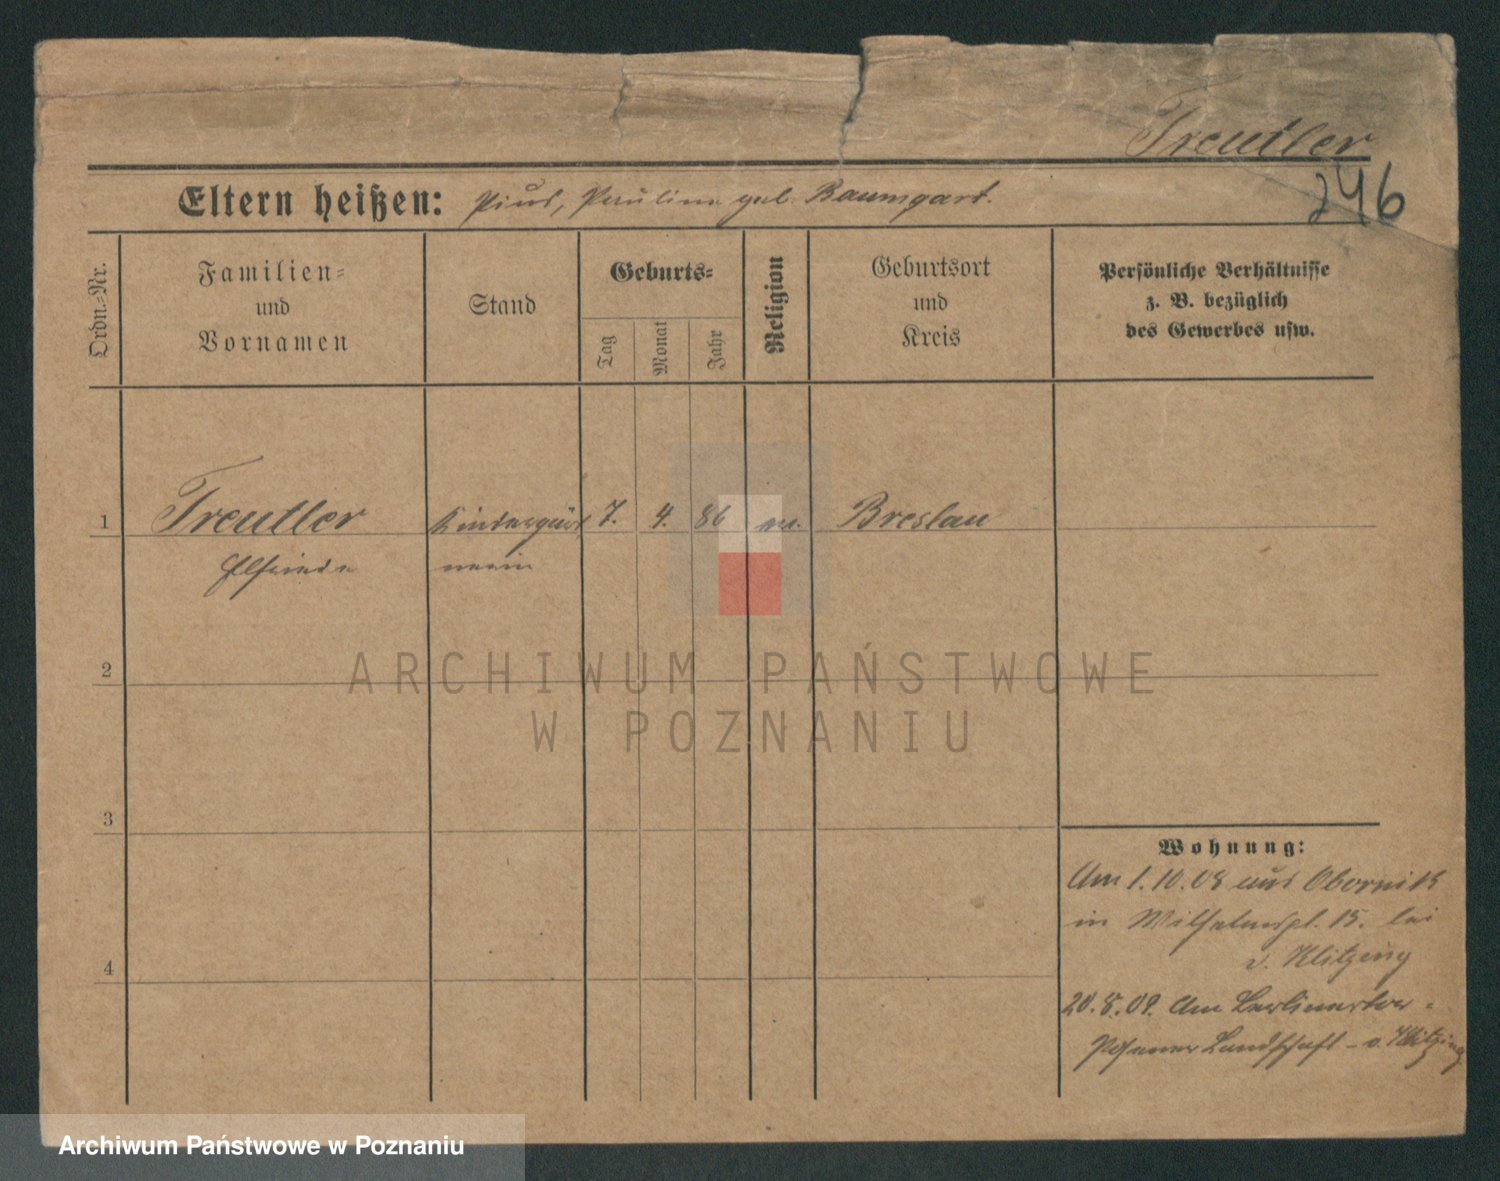 Treutler
246
Eltern heißen: Pius, Pauline geb. Baumgart.
Ordn.=Nr.
Familien=
und
Vornamen
Stand
Geburts=
Tag
Monat
Jahr
Religion
Geburtsort
und
Kreis
Persönliche Verhältnisse
z. B. bezüglich
des Gewerbes usw.
1 Treutler Kindergärt 7. 4. 86 Breslau
Elfriede nerin
ARCHIWUM PAŃSTWOWE
W POZNANIU
2
3
4
Wohnung:
Am 1.10.08 aus Obornik
in Wilhelmspl. 15. bei
v. Klitzing
20.8.09. Am Berlinertor -
Posener Landschaft - v. Klitzing
Archiwum Państwowe w Poznaniu